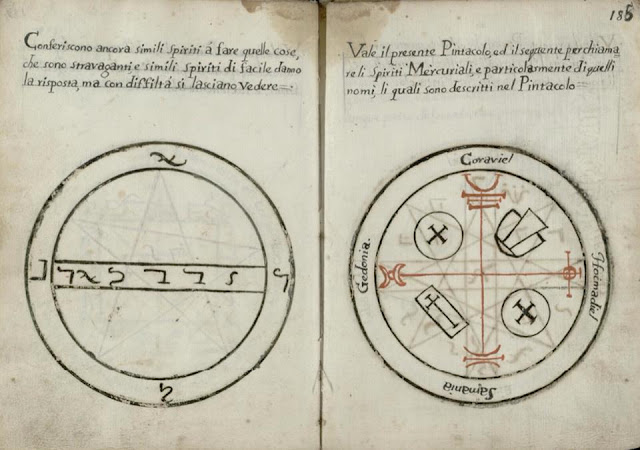 Conferiscono ancora simili spiriti à fare quelle cose,
che sono stravaganti e simili spiriti di facile danno
la risposta, ma con diffiltà si lasciano vedere
185
Vale il presente Pintacolo, ed il seguente per chiama=
re li Spiriti Mercuriali, e particolarmente di quelli
nomi, li quali sono descritti nel Pintacolo
Coraviel
Gedonia.
Hormadiel
Samania